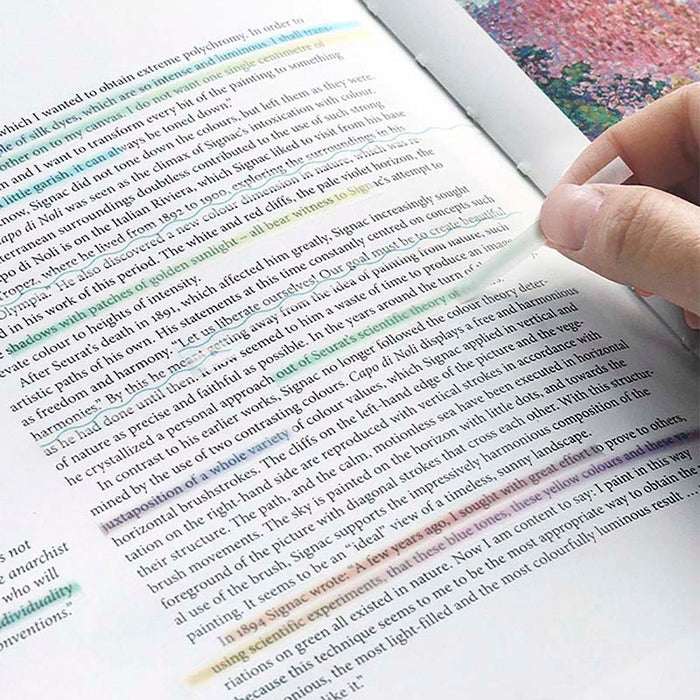 which I wanted to obtain extreme polychromy. In order to
of silk dyes, which are so intense and luminous I shall trans-
on to my canvas. I do not want one single centimetre of
and I want to transform every bit of the painting to something
little garish, it can always be toned down."
now, Signac did not tone down the colours, but left them as they were.
Capo di Noli was seen as the climax of Signac's intoxication with colour.
terranean surroundings doubtless contributed to the use of such strong
Capo di Noli is on the Italian Riviera, which Signac liked to visit from his base
where he lived from 1892 to 1920, exploring the surroundings in his
Olympia. He also discovered a new colour dimension in nature, which was re-
in his work of this period. The white and red cliffs, the pale violet horizon, the
shadows with patches of golden sunlight – all bear witness to Signac's attempt to
colour to heights of intensity.
After Seurat's death in 1891, which affected him greatly, Signac increasingly sought
artistic paths of his own. His statements at this time constantly centred on concepts such
as freedom and harmony. "Let us liberate ourselves! Our goal must be to create beautiful
harmonies." By this he meant getting away from the idea of painting from nature, such
as he had done until then. It now seemed to him a waste of time to produce an image
of nature as precise and faithful as possible. In the years around the turn of
he crystallized a personal approach out of Seurat's scientific theory of
In contrast to his earlier works, Signac no longer followed the colour theory deter-
mined by the use of two contrasting colours. Capo di Noli displays a free and harmonious
juxtaposition of a whole variety of colour values, which Signac applied in vertical and
horizontal brushstrokes. The cliffs on the left-hand edge of the picture and the vege-
tation on the right-hand side are reproduced with vertical strokes in accordance with
their structure. The path, and the calm, motionless sea have been executed in horizontal
brush movements. The sky is painted on the horizon with little dots, and towards the
foreground of the picture with diagonal strokes that cross each other. With this structur-
al use of the brush, Signac supports the impressively harmonious composition of the
painting. It seems to be an "ideal" view of a timeless, sunny landscape.
In 1894 Signac wrote: "A few years ago, I sought with great effort to prove to others,
using scientific experiments, that these blue tones, these yellow colours and these
riations on green all existed in nature. Now I am content to say: I paint in this way,
because this technique seems to me to be the most appropriate way to obtain the
the most light-filled and the most colourfully luminous result
like it."
not
anarchist
who will
individuality
conventions."